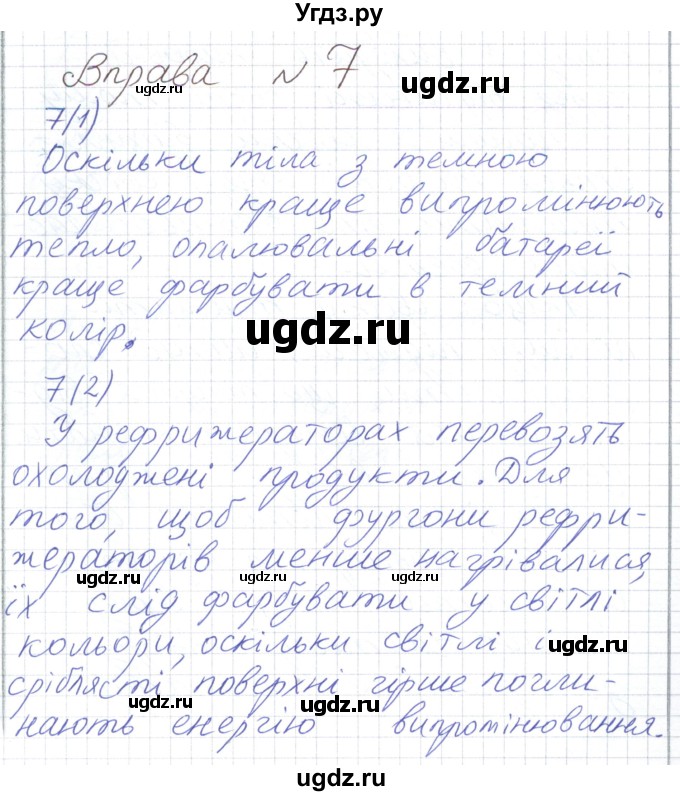 Угдз.ру
Вправа № 7
ugdz.ru
ugdz.ru
7(1)
Оскільки тіла з темною
поверхнею краще випромінюють
тепло, опалювальні батареї
краще фарбувати в темний
колір.
ugdz.ru
7(2)
У рефрижераторах перевозять
охолоджені продукти. Для
того, щоб фургони рефри-
жераторів менше нагрівалися,
ugdz.ru
ugdz.ru
їх слід фарбувати у світлі
кольори, оскільки світлі і
ugdz.ru
сріблясті поверхні гірше погли-
ugdz.ru
нають енергію випромінювання.
ugdz.ru